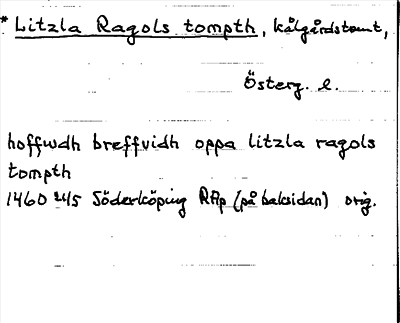 * Litzla Ragols tompth, kålgårdstomt,
Österg. l.
hoffwdh breffvidh oppa litzla ragols
tompth
1460 24/5 Söderköping RAp (på baksidan) orig.